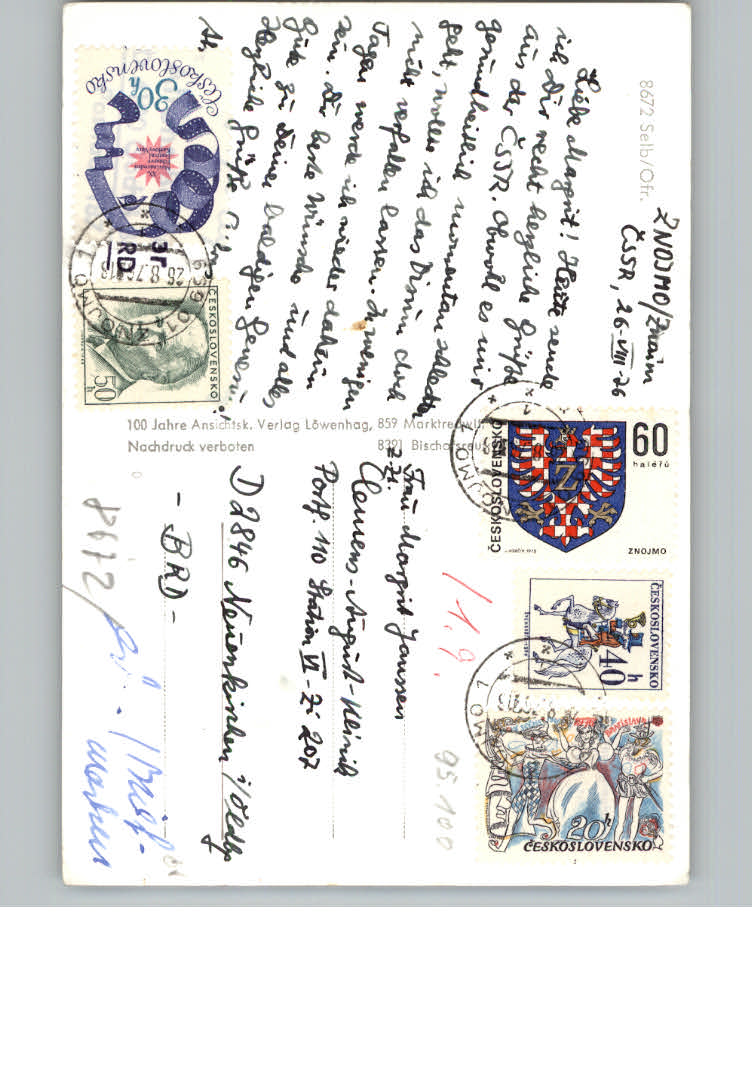 8672 Selb/Ofr.
ZNOJMO/Znaim
ČSSR, 26-VIII-76
Liebe Margrit! Heute sende
ich Dir recht herzliche Grüße
aus der ČSSR. Obwohl es mir
gesundheitlich momentan
geht, wollte ich das Visum doch
nicht verfallen lassen. In wenigen
Tagen werde ich wieder daheim
sein. Dir beste Wünsche und alles
Gute zu Deiner baldigen Genesung!
Herzliche Grüße
100 Jahre Ansichtsk. Verlag Löwenhag, 859 Marktredwitz
Nachdruck verboten 8391 Bischofsreut
Frau Margrit Janssen
z.Zt.
Clemens-August-Klinik
Postf. 110 Station VI-Zi 207
D2846 Neuenkirchen i/Oldbg
- BRD -
8672
/1.9.
95.100
ČESKOSLOVENSKO
30h
ČESKOSLOVENSKO
50h
669 01 ZNOJMO 1
26.8.76
ČESKOSLOVENSKO
60
haléřů
Z
ZNOJMO
ČESKOSLOVENSKO
40h
Bratislava
20h
ČESKOSLOVENSKO